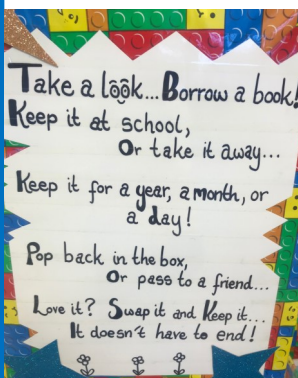 Take a look... Borrow a book!
Keep it at school,
Or take it away...
Keep it for a year, a month, or
a day!
Pop back in the box,
Or pass to a friend...
Love it? Swap it and Keep it...
It doesn't have to end!